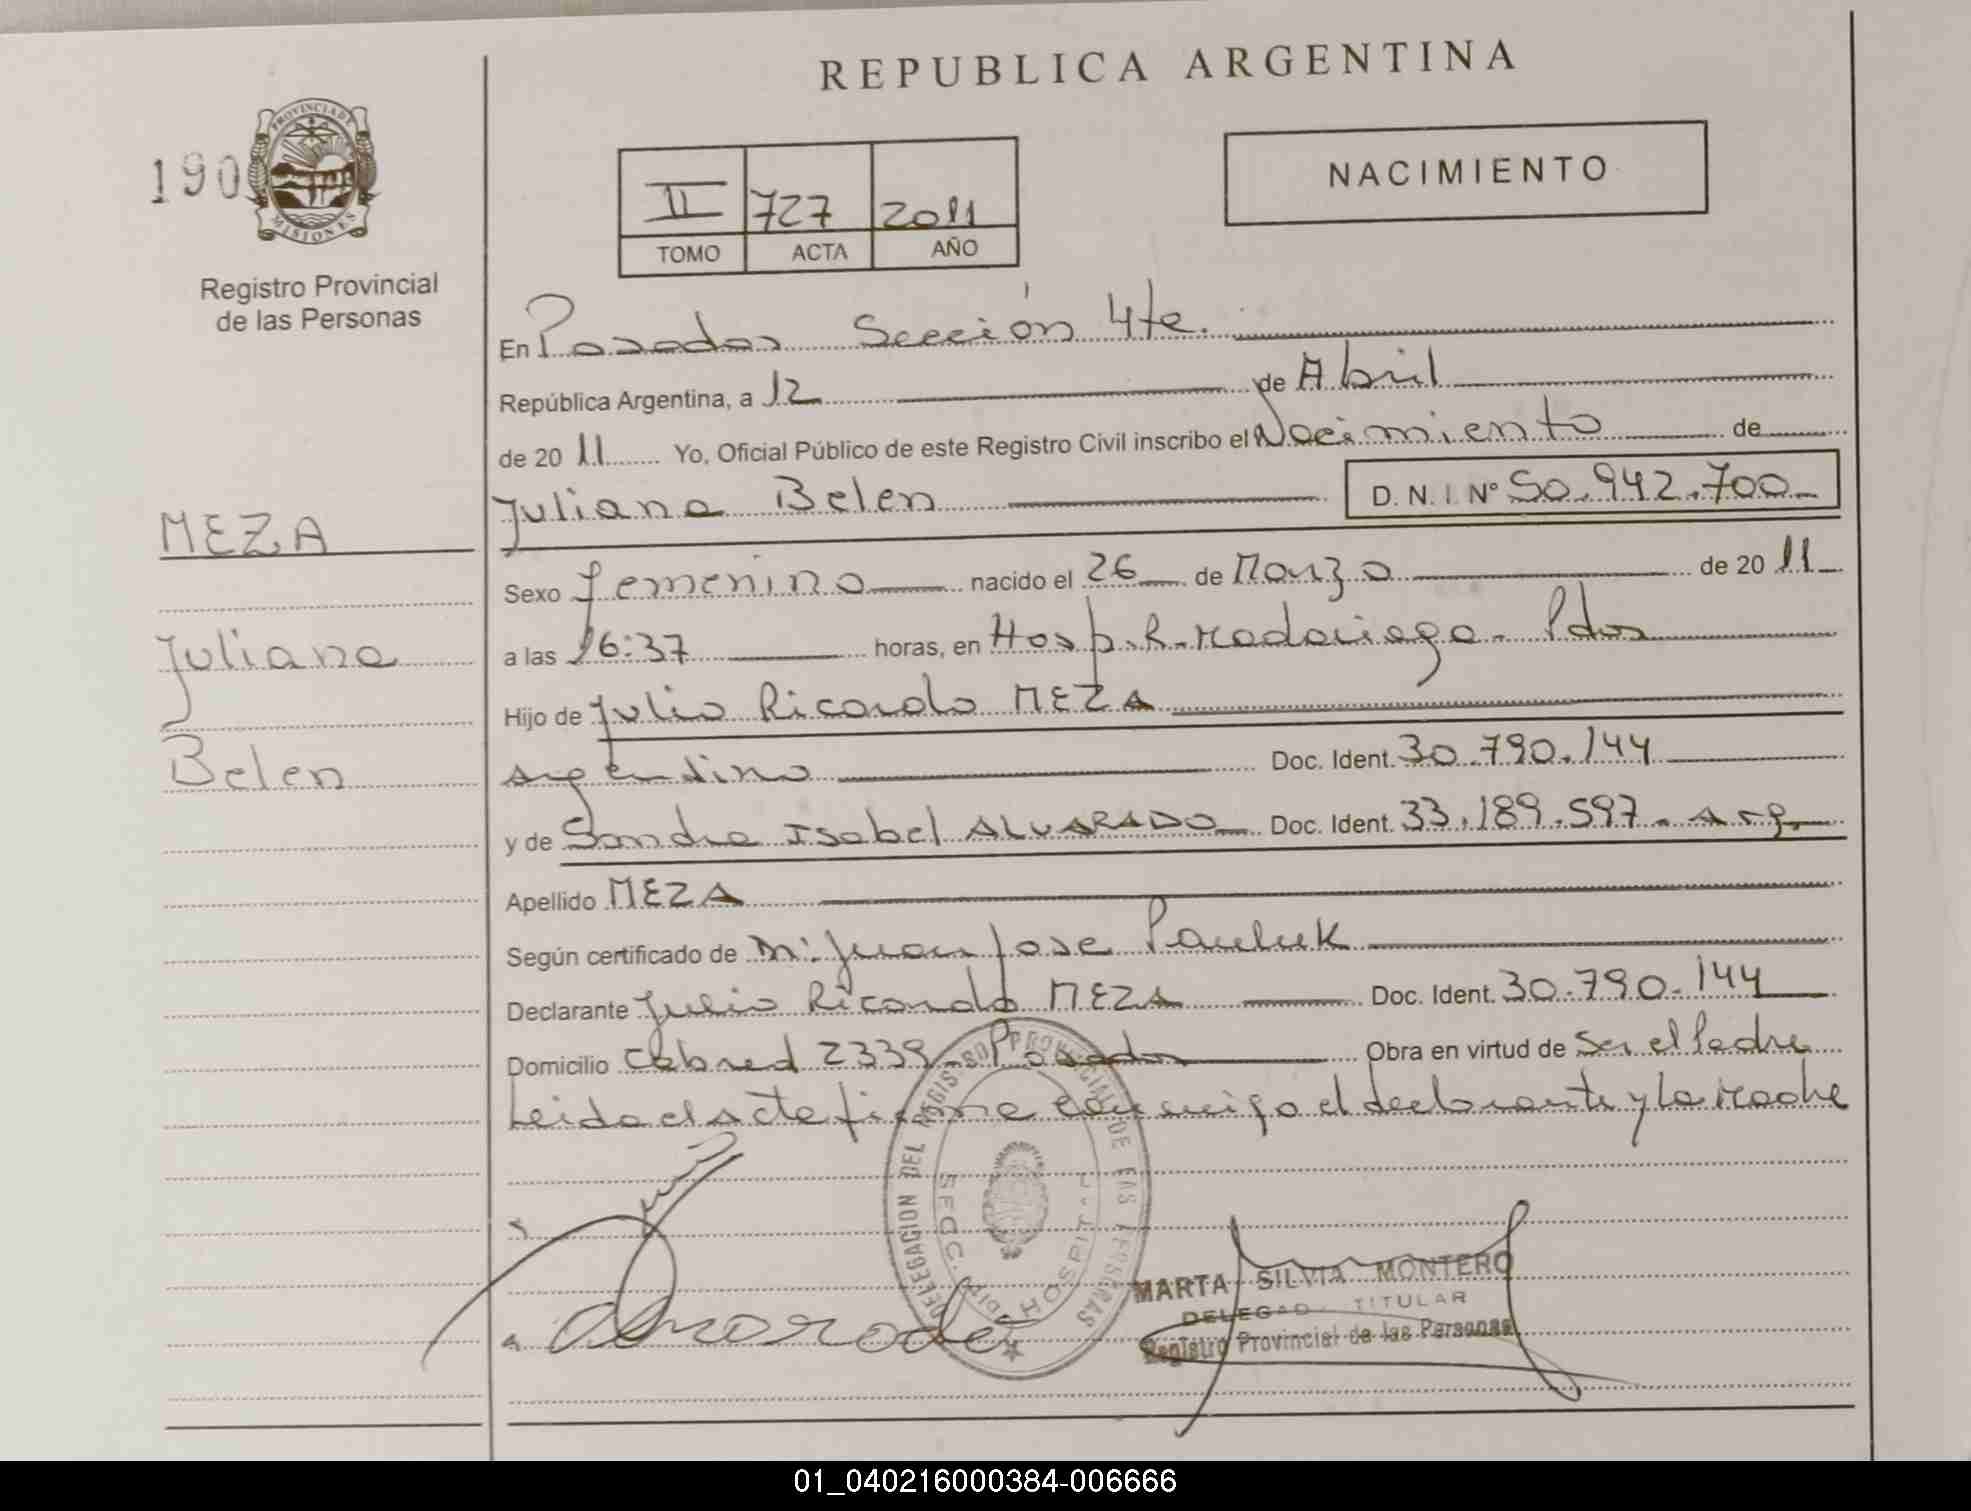 REPUBLICA ARGENTINA
190
PROVINCIA DE
MISIONES
Registro Provincial
de las Personas
II 727 2011
TOMO ACTA AÑO
NACIMIENTO
En Posadas Sección 4te.
República Argentina, a 12 de Abril
de 20 11 Yo, Oficial Público de este Registro Civil inscribo el Nacimiento de
Juliana Belen D. N. I. Nº 50.942.700
MEZA
Juliana
Belen
Sexo femenino nacido el 26 de Marzo de 20 11
a las 16:37 horas, en Hosp. R. Madariaga. Pdas
Hijo de Julio Ricardo MEZA
argentino Doc. Ident. 30.790.144
y de Sandra Isabel ALVARADO Doc. Ident. 33.189.597. Arg.
Apellido MEZA
Según certificado de M: Juan Jose Pauluk
Declarante Julio Ricardo MEZA Doc. Ident. 30.790.144
Domicilio Cabred 2339. Posadas Obra en virtud de Ser el Padre
Leida el acta firma conmigo el declarante y la Madre
DELEGACION DEL REGISTRO PROVINCIAL DE LAS PERSONAS
SECC. HOSPITAL
MARTA SILVIA MONTERO
DELEGADO TITULAR
Registro Provincial de las Personas
01_040216000384-006666